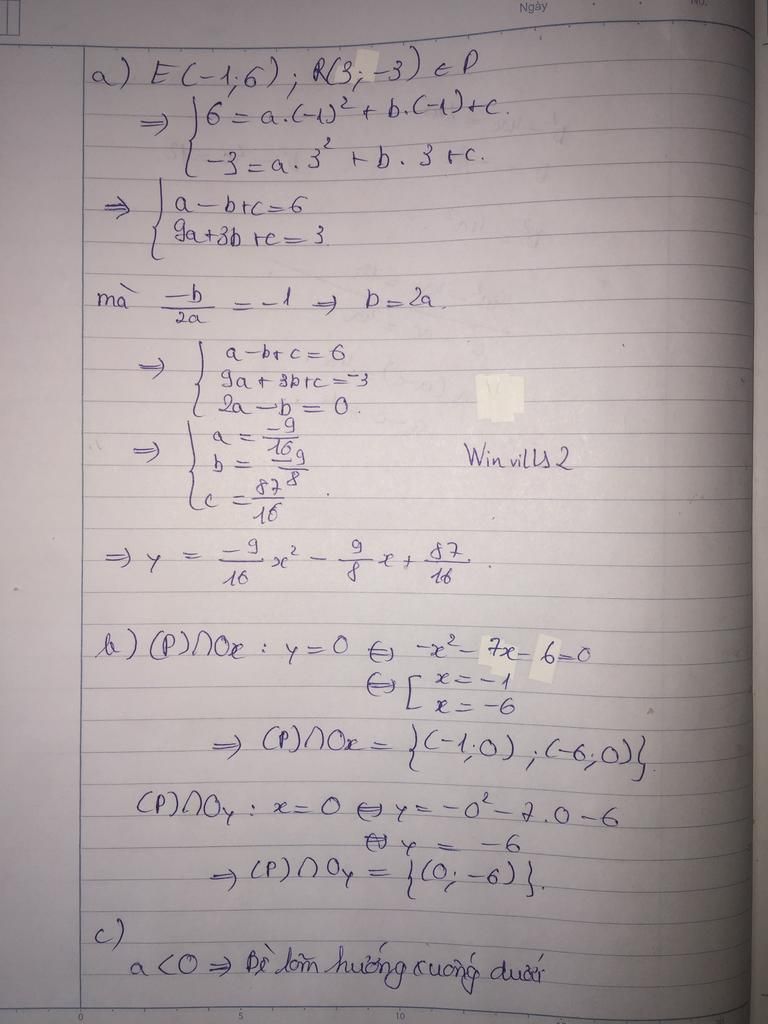 Ngày
No.
a) E(-1;6); R(3;-3) ∈ P
⇒ { 6 = a.(-1)² + b.(-1)+c.
-3 = a.3² + b.3+c.
⇒ { a-b+c=6
9a+3b+c=3.
mà -b/2a = -1 ⇒ b=2a.
⇒ { a-b+c=6
9a+3b+c=-3
2a-b=0.
⇒ { a = -9/16
b = -9/8
Winvills2
c = 87/16.
⇒ y = -9/16 x² - 9/8 x + 87/16.
b) (P)∩Ox : y=0 ⇔ -x²-7x-6=0
⇔ [ x=-1
x=-6
⇒ (P)∩Ox = {(-1;0);(-6;0)}.
(P)∩Oy : x=0 ⇔ y=-0²-7.0-6
⇔ y = -6
⇒ (P)∩Oy = {(0;-6)}.
c)
a<0 ⇒ Bề lõm hướng xuống dưới
0 5 10